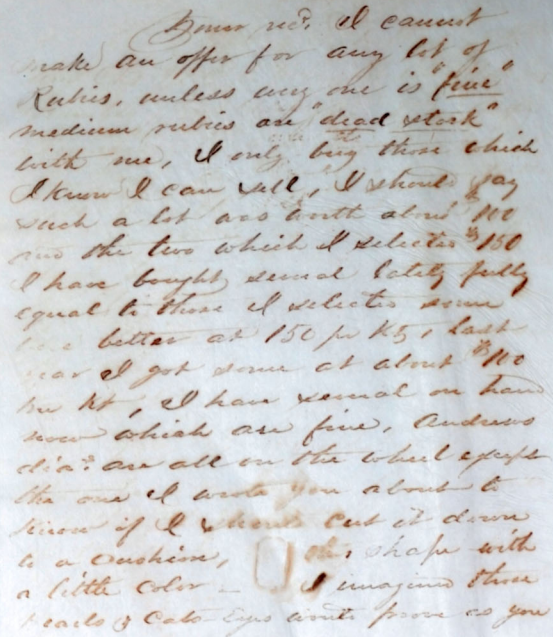 Boxes recd. I cannot
make an offer for any lot of
Rubies, unless any one is "fine"
medium rubies are "dead stock"
with me, I only buy those which
I know I can sell, I should say
such a lot was worth about $100
and the two which I selected $150
I have bought several lately fully
equal to those I selected some
better at 150 pr Kt, last
year I got some at about $110
per Kt, I have several on hand
now which are fine, Andrews
dias. are all on the wheel except
the one I wrote you about to
know if I should cut it down
to a cushion, this shape with
a little color — I imagined those
Pearls & Cats-Eyes would prove as you